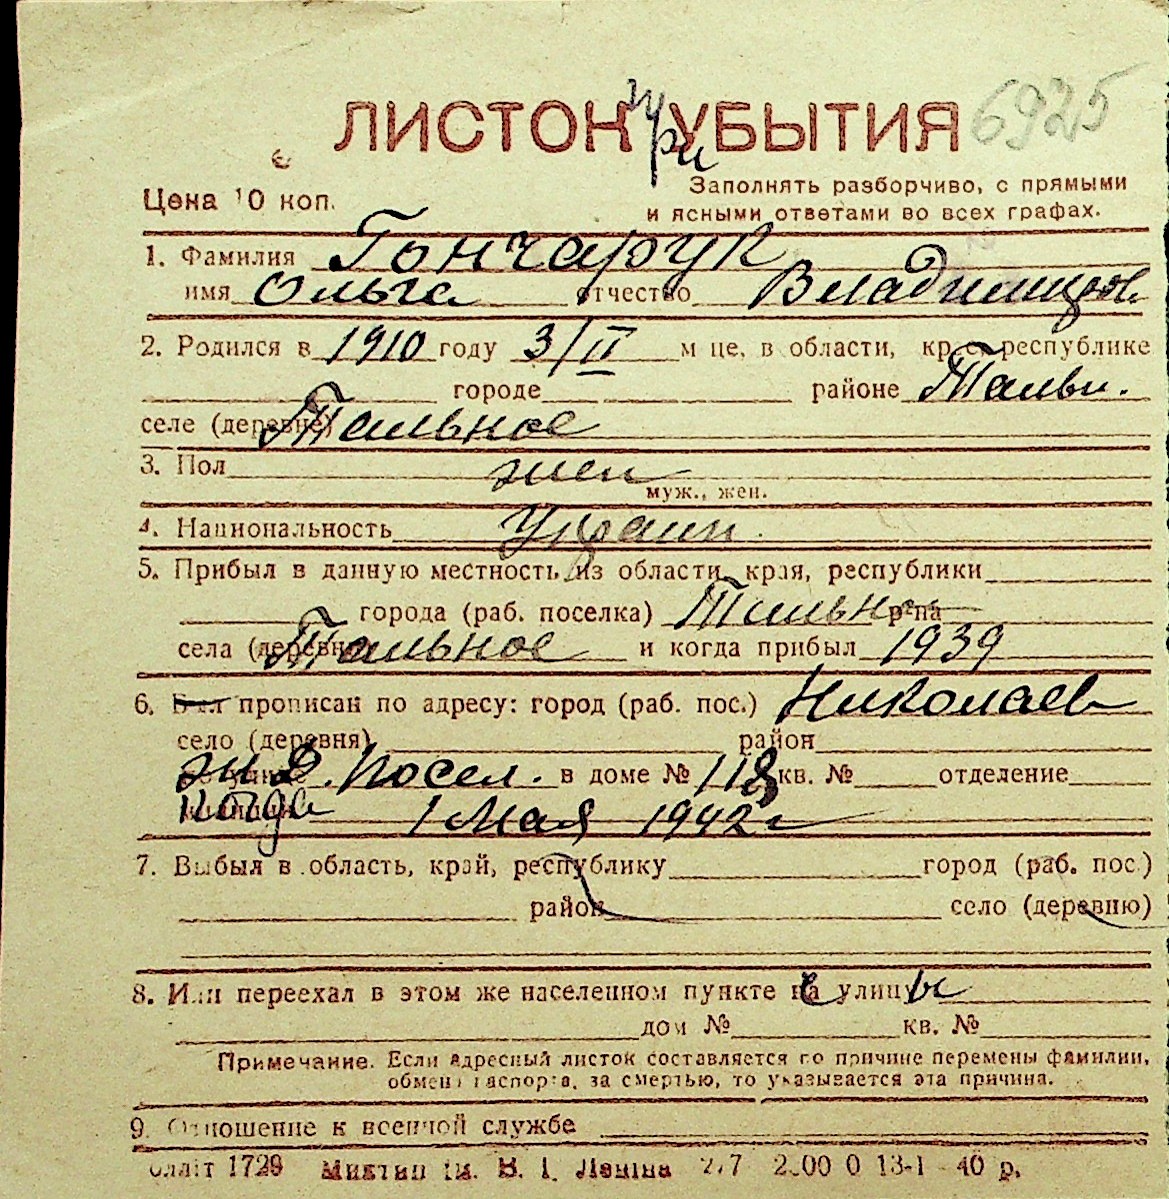 ЛИСТОК при УБЫТИЯ 6925
Цена 10 коп. Заполнять разборчиво, с прямыми
и ясными ответами во всех графах.
1. Фамилия Гончарук
имя Ольга отчество Владимиров.
2. Родился в 1910 году 3/II м це, в области, кр с, республике
городе районе Тальн.
селе (деревне) Тальное
3. Пол жен
муж., жен.
4. Национальность Украин.
5. Прибыл в данную местность из области, края, республики
города (раб. поселка) Тальн р-на
села (деревни) Тальное и когда прибыл 1939
6. Был прописан по адресу: город (раб. пос.) Николаев
село (деревня) район
жд. посел. в доме № 118 кв. № отделение
когда 1 Мая 1942 г
7. Выбыл в область, край, республику город (раб. пос.)
район село (деревню)
8. Или переехал в этом же населенном пункте с улицы
дом № кв. №
Примечание. Если адресный листок составляется по причине перемены фамилии,
обмена паспорта, за смертью, то указывается эта причина.
9. Отношение к военной службе
1729 В. І. Леніна 13-1 40 р.